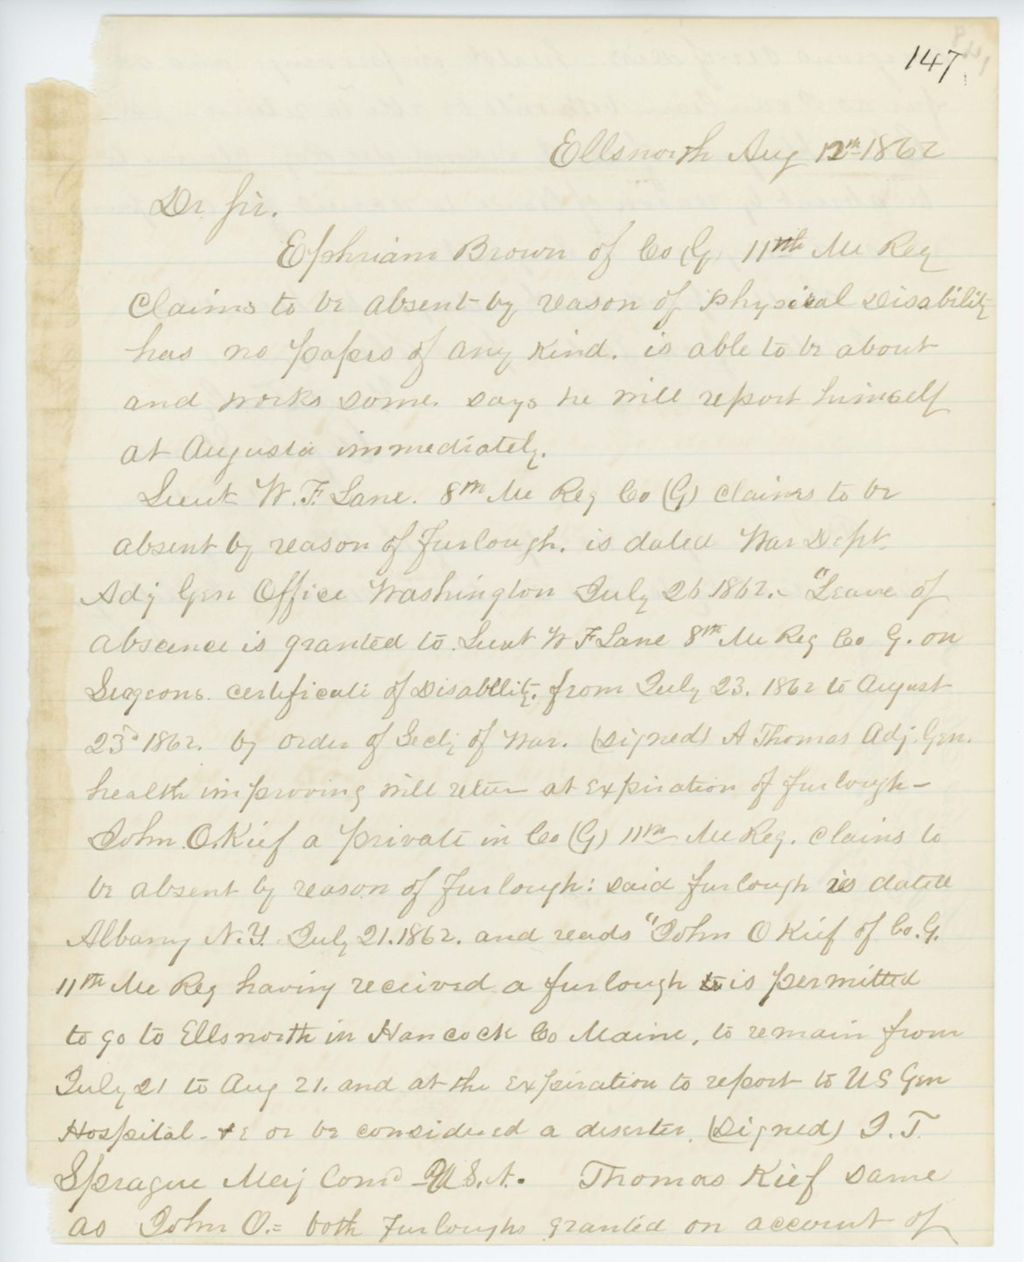 147.
Ellsworth Aug 12th 1862
Dr Sir.
Ephriam Brown of Co (G) 11th Me Reg
Claims to be absent by reason of Physical Disability
has no papers of any kind. is able to be about
and works some days he will report himself
at Augusta immediately.
Lieut W. F. Lane. 8th Me Reg Co (G) claims to be
absent by reason of furlough. is dated War Dept.
Adj Gen Office Washington July 26 1862. "Leave of
absence is granted to Lieut W F Lane 8th Me Reg Co G. on
Surgeons certificate of Disability. from July 23. 1862 to August
23d 1862. by order of Secty of War. (Signed) A Thomas Adj. Gen.
health improving will return at expiration of furlough—
John. O. Kief a private in Co (G) 11th Me Reg. claims to
be absent by reason of furlough: said furlough is dated
Albany N.Y. July 21. 1862. and reads "John O Kief of Co. G.
11th Me Reg having received a furlough is permitted
to go to Ellsworth in Hancock Co Maine, to remain from
July 21 to Aug 21. and at the expiration to report to US Gen
Hospital. or be considered a deserter. (Signed) J. T.
Sprague Maj Comd U.S.A. Thomas Kief same
as John O.= both furloughs granted on account of